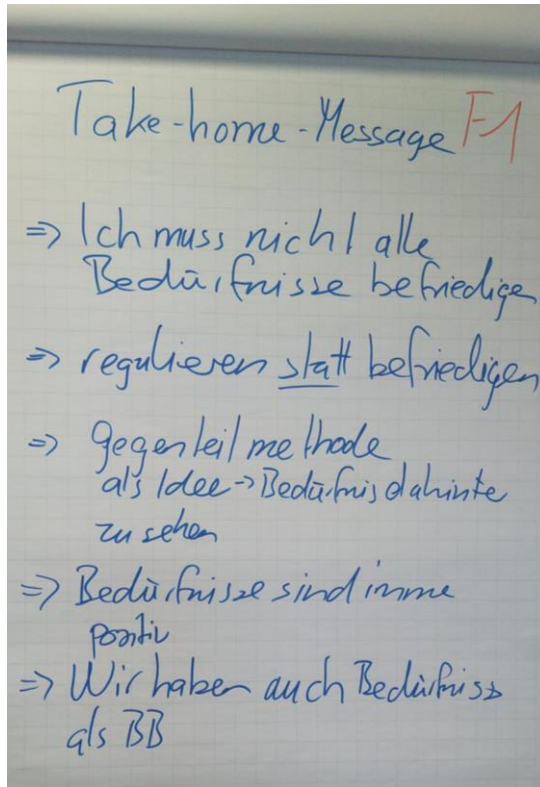 Take-home-Message F1
=> Ich muss nicht alle
Bedürfnisse befriedigen
=> regulieren statt befriedigen
=> Gegenteilmethode
als Idee -> Bedürfnis dahinte
zu sehen
=> Bedürfnisse sind imme
positiv
=> Wir haben auch Bedürfniss
als BB